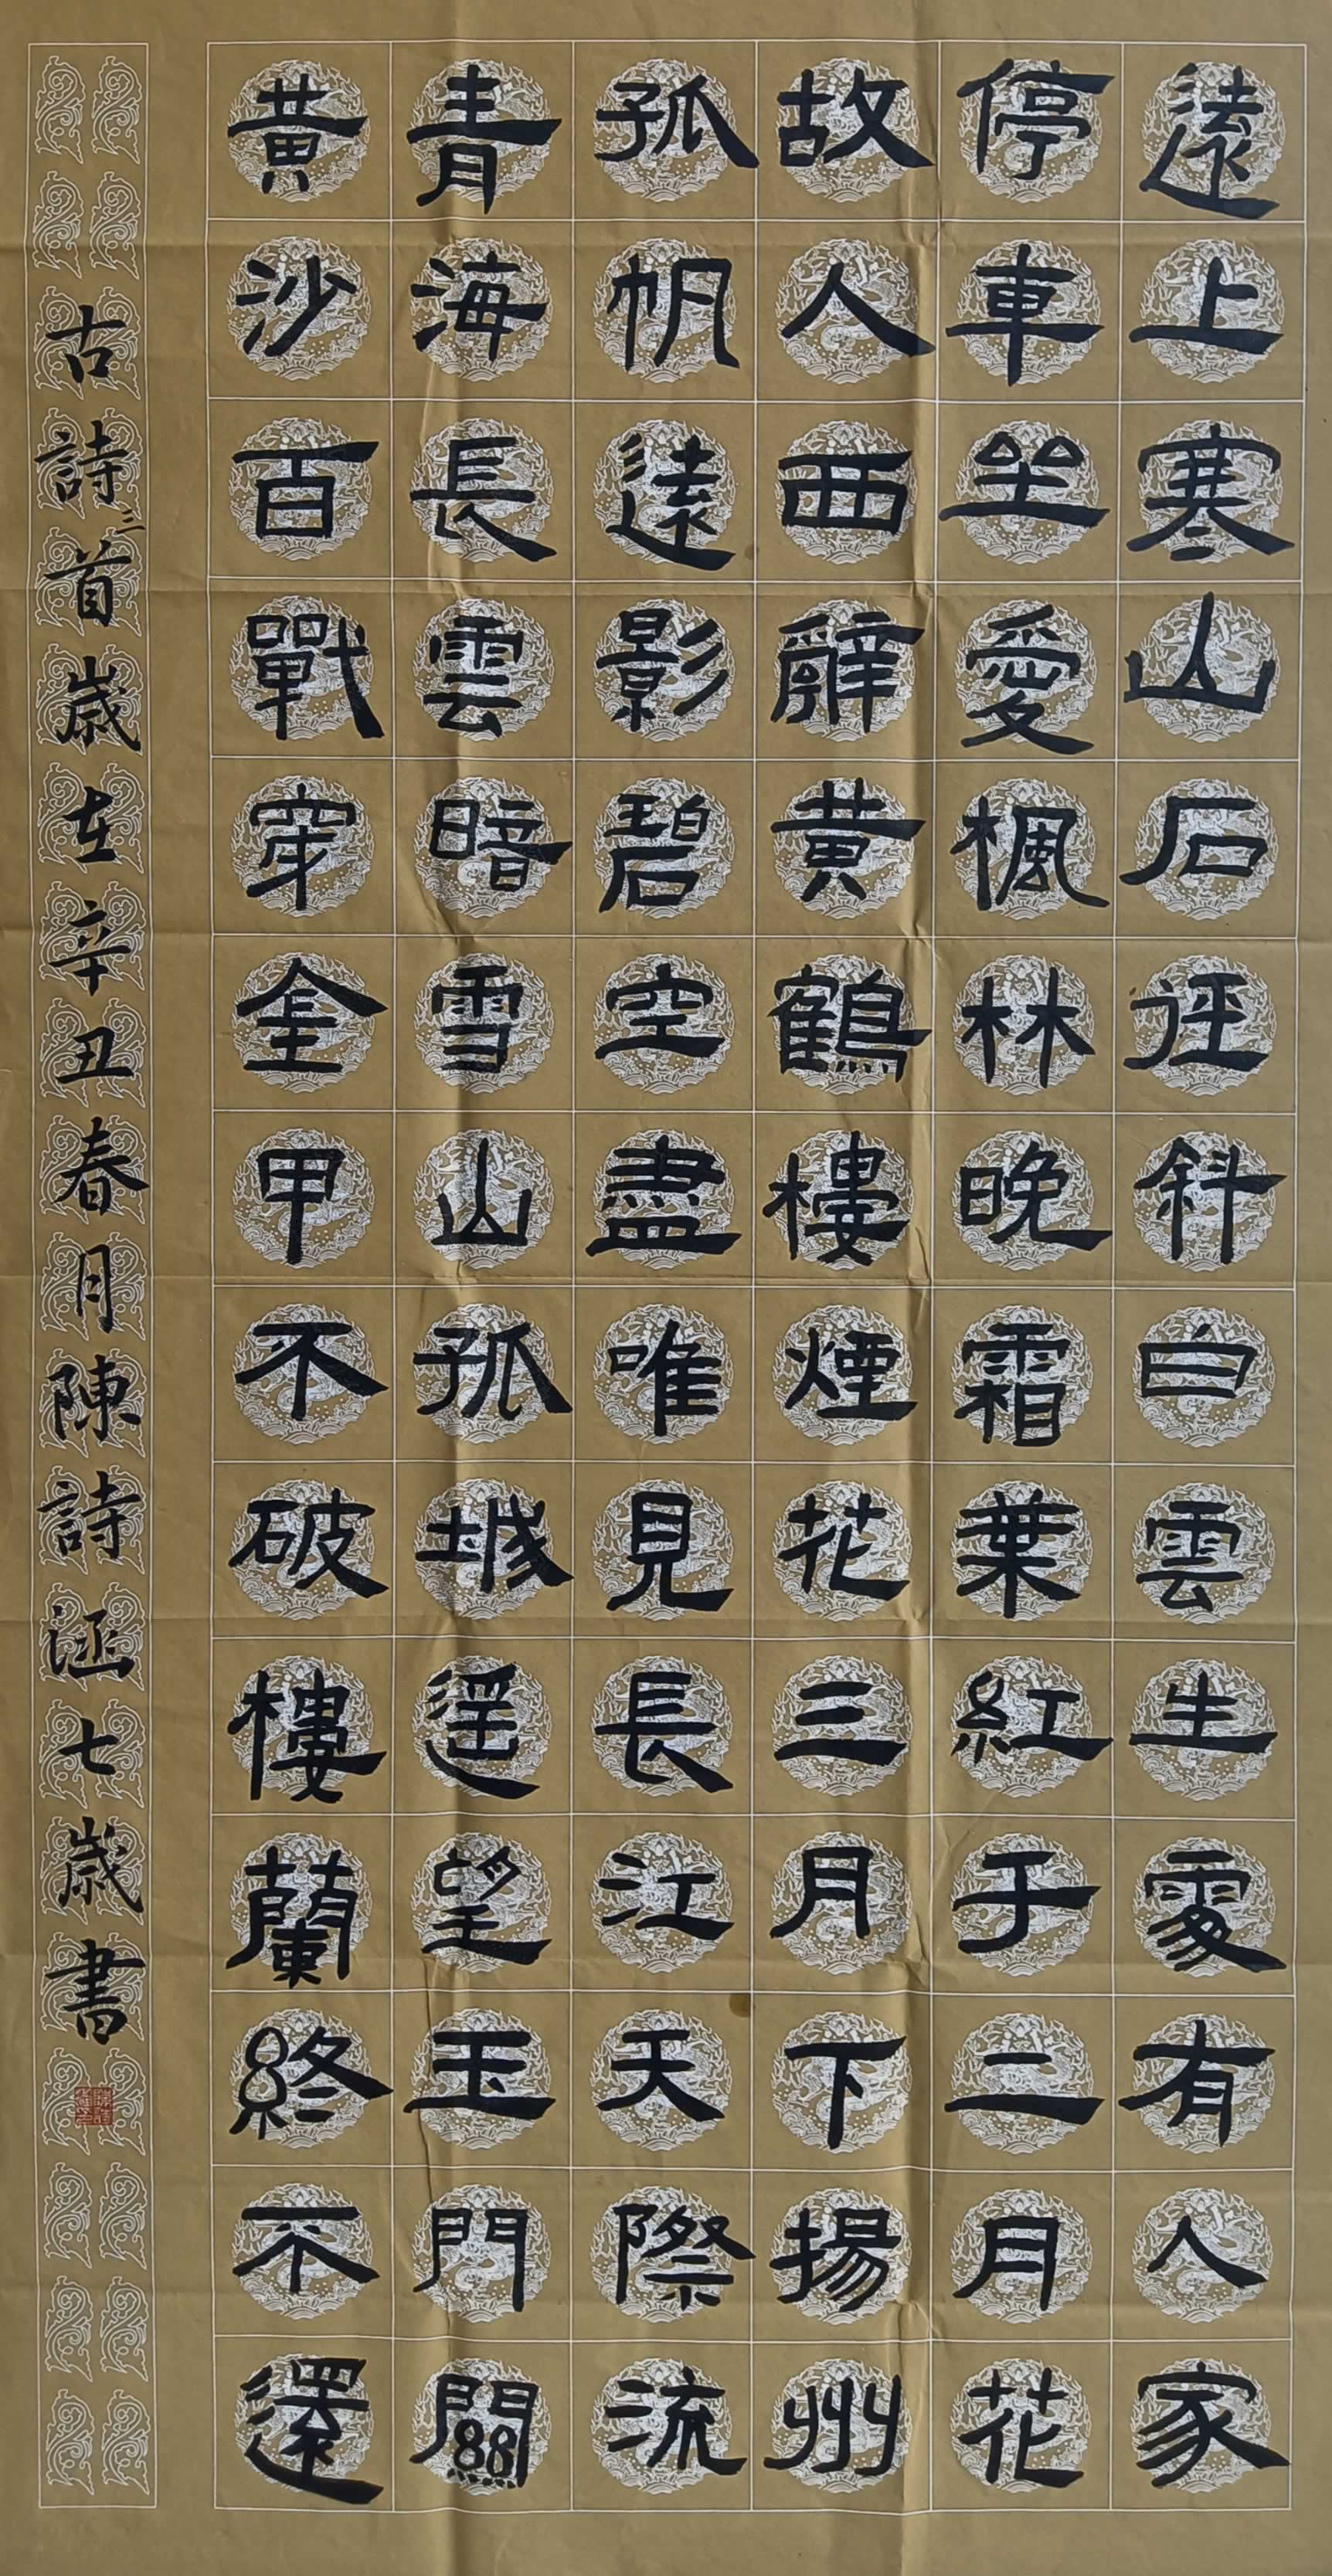 遠上寒山石徑斜白雲生處有人家
停車坐愛楓林晚霜葉紅于二月花
故人西辭黃鶴樓煙花三月下揚州
孤帆遠影碧空盡唯見長江天際流
青海長雲暗雪山孤城遥望玉門關
黃沙百戰穿金甲不破樓蘭終不還
古詩三首歲在辛丑春月陳詩涵七歲書